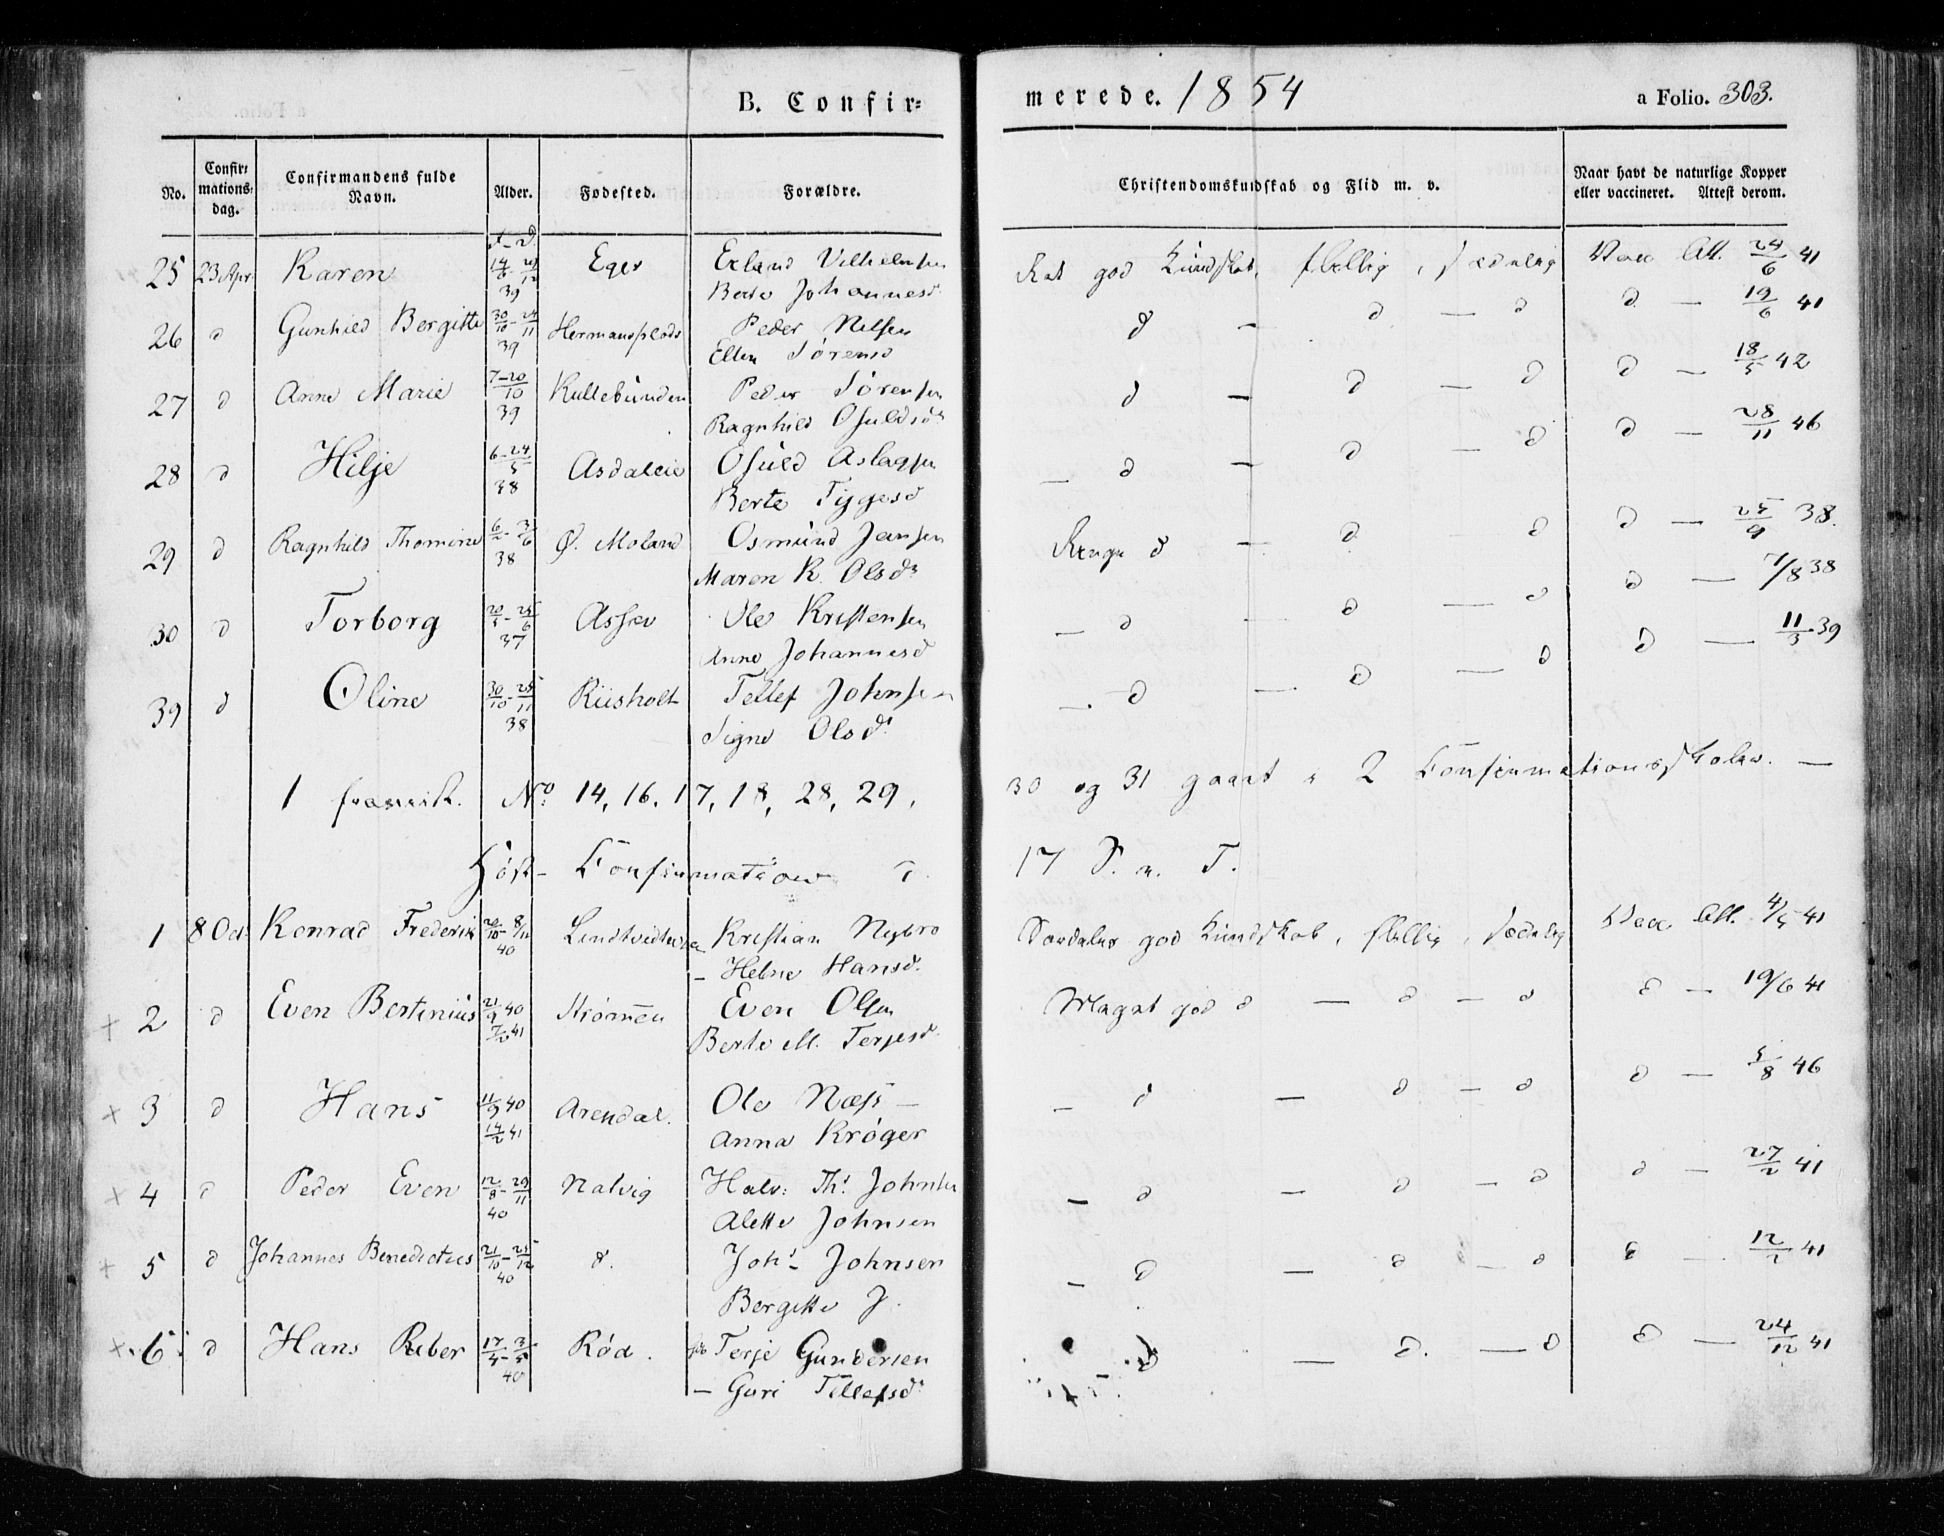 B. Confir=
merede. 1854
a Folio. 303.
No.
Confir=
mations=
dag.
Confirmandens fulde
Navn.
Alder.
Fødested.
Forældre.
Christendomskundskab og Flid m. v.
Naar havt de naturlige Kopper
eller vaccineret. Attest derom.
25 23 Apr Karen 39 Eger Erland Vilhelmsen
Berte Johannesd.
god Kundskab, flittig, sædelig Vac Att. 24/6 41
26 d Gunhild Bergitte 30/10 - 24/11 39 Hermansplads Peder Nilsen
Ellen Sørensd
d — d — d d — 19/6 41
27 d Anne Marie 7-20/10 39 Kullebunden Peder Sørensen
Ragnhild Osuldsd
d — d — d d — 18/5 42
28 d Hilje 6-24/5 38 Asdaleie Osuld Aslagsen
Berte Tygesd
— d — d — d d — 28/11 46
29 d Ragnhild Thomine 6/2 - 3/6 38 Ø. Moland Osmund Jensen
Maren K. Olsdr
d — d — d d — 25/9 38.
30 d Torborg 20/5 - 25/6 37 Assev Ole Kristensen
Anne Johannesd
— d — d — d d — 7/8 38
39 d Oline 30/10 - 25/11 38 Riisholt Tellef Johnsen
Signe Olsdr
— d — d — d d — 11/3 39
1 No 14, 16, 17, 18, 28, 29,
30 og 31 gaaet i 2 Confirmationsskoler. —
Høst- Confirmation d.
17 S. n. T.
1 8 Oct Konrad Frederik 20/10 - 8/11 40 Kristian Nybro
— Helene Hansd.
god Kundskab, flittig, sædelig Vac Att. 4/5 41
2 d Even Bertinius 21/9 40 7/2 41 Strømmen Even Olsen
Berte M. Terjesd.
Meget god d — d — d d — 19/6 41
3 d Hans 11/9 40 14/2 41 Arendal. Ole Næss —
Anna Krøger
— d — d — d d — 5/8 46
4 d Peder Even 12/8 - 29/11 40 Natvig Halv: Th. Johnsen
Alette Johnsen
— d — d — d d — 27/2 41
5 d Johannes Benedictus 21/10 - 25/12 40 d. Joh. Johnsen
Bergitte J.
— d — d — d d — 12/2 41
6 d Hans Reber 17/4 - 3/5 40 Rød. Terje Gundersen
— Guri Tellefsdr
d — d. — d d — 24/12 41